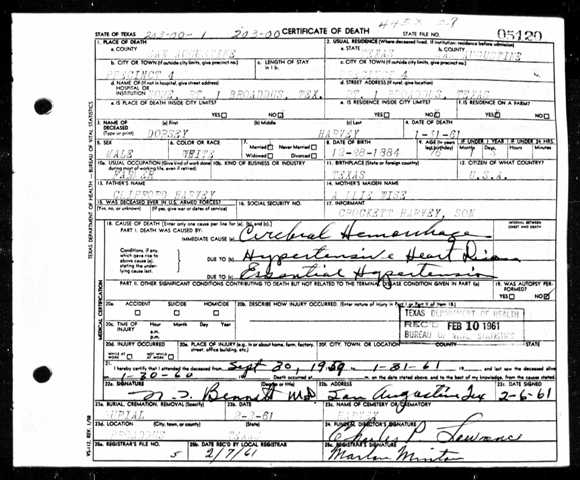 4453 09
STATE OF TEXAS 203-00-1 203-00 CERTIFICATE OF DEATH STATE FILE NO. 05120
1. PLACE OF DEATH
a. COUNTY SAN AUGUSTINE
2. USUAL RESIDENCE (Where deceased lived. If institution: residence before admission)
a. STATE TEXAS b. COUNTY SAN AUGUSTINE
b. CITY OR TOWN (If outside city limits, give precinct no.) PRECINCT 4
c. LENGTH OF STAY in 1 b.
c. CITY OR TOWN (If outside city limits, give precinct no.)
d. NAME OF (If not in hospital, give street address) HOSPITAL OR INSTITUTION HOME, RT. 1 BROADDUS, TEX.
d. STREET ADDRESS (If rural, give location) RT. 1 BROADDUS, TEXAS
e. IS PLACE OF DEATH INSIDE CITY LIMITS? YES NO
e. IS RESIDENCE INSIDE CITY LIMITS? YES NO
f. IS RESIDENCE ON A FARM? YES NO
3. NAME OF DECEASED (Type or print) (a) First DORSEY (b) Middle (c) Last HARVEY
4. DATE OF DEATH 1-31-61
5. SEX MALE
6. COLOR OR RACE WHITE
7. Married Never Married Widowed Divorced
8. DATE OF BIRTH 12-28-1884
9. AGE (In years last birthday) 76
IF UNDER 1 YEAR Months Days
IF UNDER 24 HRS. Hours Min.
10a. USUAL OCCUPATION (Give kind of work done during most of working life, even if retired) FARMER
10b. KIND OF BUSINESS OR INDUSTRY
11. BIRTHPLACE (State or foreign country) TEXAS
12. CITIZEN OF WHAT COUNTRY? U.S.A.
13. FATHER'S NAME HARVEY
14. MOTHER'S MAIDEN NAME WISE
15. WAS DECEASED EVER IN U.S. ARMED FORCES? (Yes, no, or unknown) (If yes, give war or dates of service)
16. SOCIAL SECURITY NO.
17. INFORMANT CROCKETT HARVEY, SON
18. CAUSE OF DEATH [Enter only one cause per line for (a), (b), and (c).]
INTERVAL BETWEEN ONSET AND DEATH
PART I. DEATH WAS CAUSED BY:
IMMEDIATE CAUSE (a) Cerebral Hemorrhage
Conditions, if any, which gave rise to above cause (a) stating the underlying cause last.
DUE TO (b) Hypertensive Heart Disease
DUE TO (c) Essential Hypertension
PART II. OTHER SIGNIFICANT CONDITIONS CONTRIBUTING TO DEATH BUT NOT RELATED TO THE TERMINAL DISEASE CONDITION GIVEN IN PART I(a)
19. WAS AUTOPSY PERFORMED? YES NO
20a. ACCIDENT SUICIDE HOMICIDE
20b. DESCRIBE HOW INJURY OCCURRED. (Enter nature of injury in Part I or Part II of item 18.)
20c. TIME OF INJURY Hour a.m. p.m. Month Day Year
TEXAS DEPARTMENT OF HEALTH
REC'D FEB 10 1961
BUREAU OF VITAL STATISTICS
20d. INJURY OCCURRED WHILE AT WORK NOT WHILE AT WORK
20e. PLACE OF INJURY (e.g., in or about home, farm, factory, street, office building, etc.)
20f. CITY, TOWN, OR LOCATION COUNTY STATE
21. I hereby certify that I attended the deceased from Sept 30, 1959 to 1-31-61 and last saw the deceased alive
on 1-30-60 Death occurred at m. on the date stated above, and to the best of my knowledge, from the causes stated.
22a. SIGNATURE (Degree or title) Bennett M.D.
22b. ADDRESS San Augustine Tex
22c. DATE SIGNED 2-6-61
23a. BURIAL, CREMATION, REMOVAL (Specify) BURIAL
23b. DATE
23c. NAME OF CEMETERY OR CREMATORY
23d. LOCATION (City, town, or county) (State)
24. FUNERAL DIRECTOR'S SIGNATURE Charles P. Lawrence
25a. REGISTRAR'S FILE NO. 5
25b. DATE REC'D BY LOCAL REGISTRAR 2/7/61
25c. REGISTRAR'S SIGNATURE Marlon Minton
TEXAS DEPARTMENT OF HEALTH - BUREAU OF VITAL STATISTICS
MEDICAL CERTIFICATION
VS-112, REV. 1/58